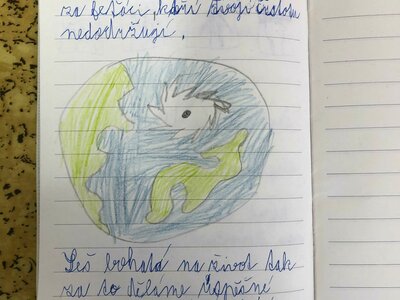 za feťáci, kteří svojí čistotu
nedodržují.
Leš bohatá na život tak
za to děláme úspěšné